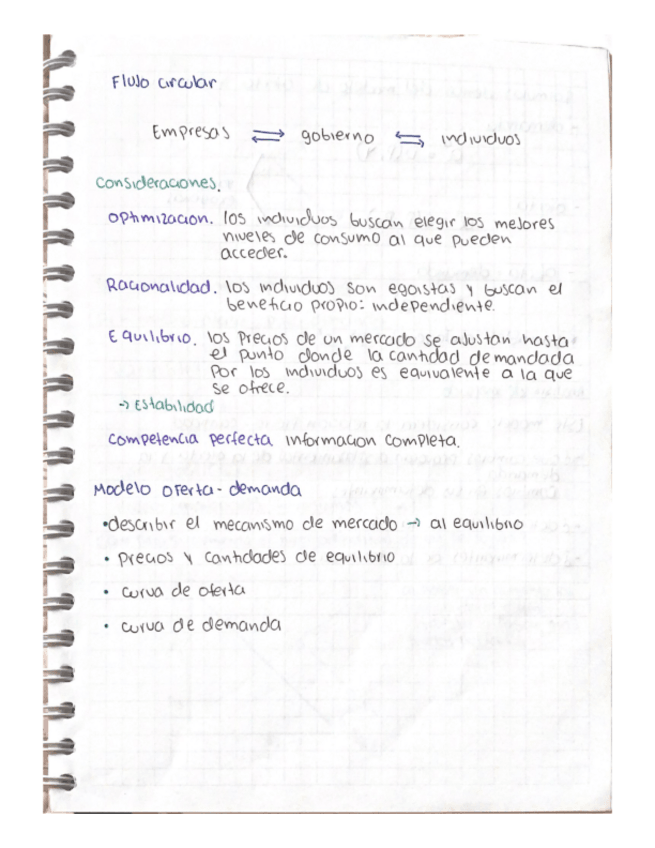 Flujo circular
Empresas ⇄ gobierno ⇆ individuos
Consideraciones.
Optimizacion. los individuos buscan elegir los mejores
niveles de consumo al que pueden
acceder.
Racionalidad. los individuos son egoistas y buscan el
beneficio propio: independiente.
Equilibrio. los Precios de un mercado se ajustan hasta
el punto donde la cantidad demandada
Por los individuos es equivalente a la que
se ofrece.
→ Estabilidad
Competencia perfecta informacion completa.
Modelo oferta-demanda
•describir el mecanismo de mercado → al equilibrio
• precios y cantidades de equilibrio
• curva de oferta
• curva de demanda